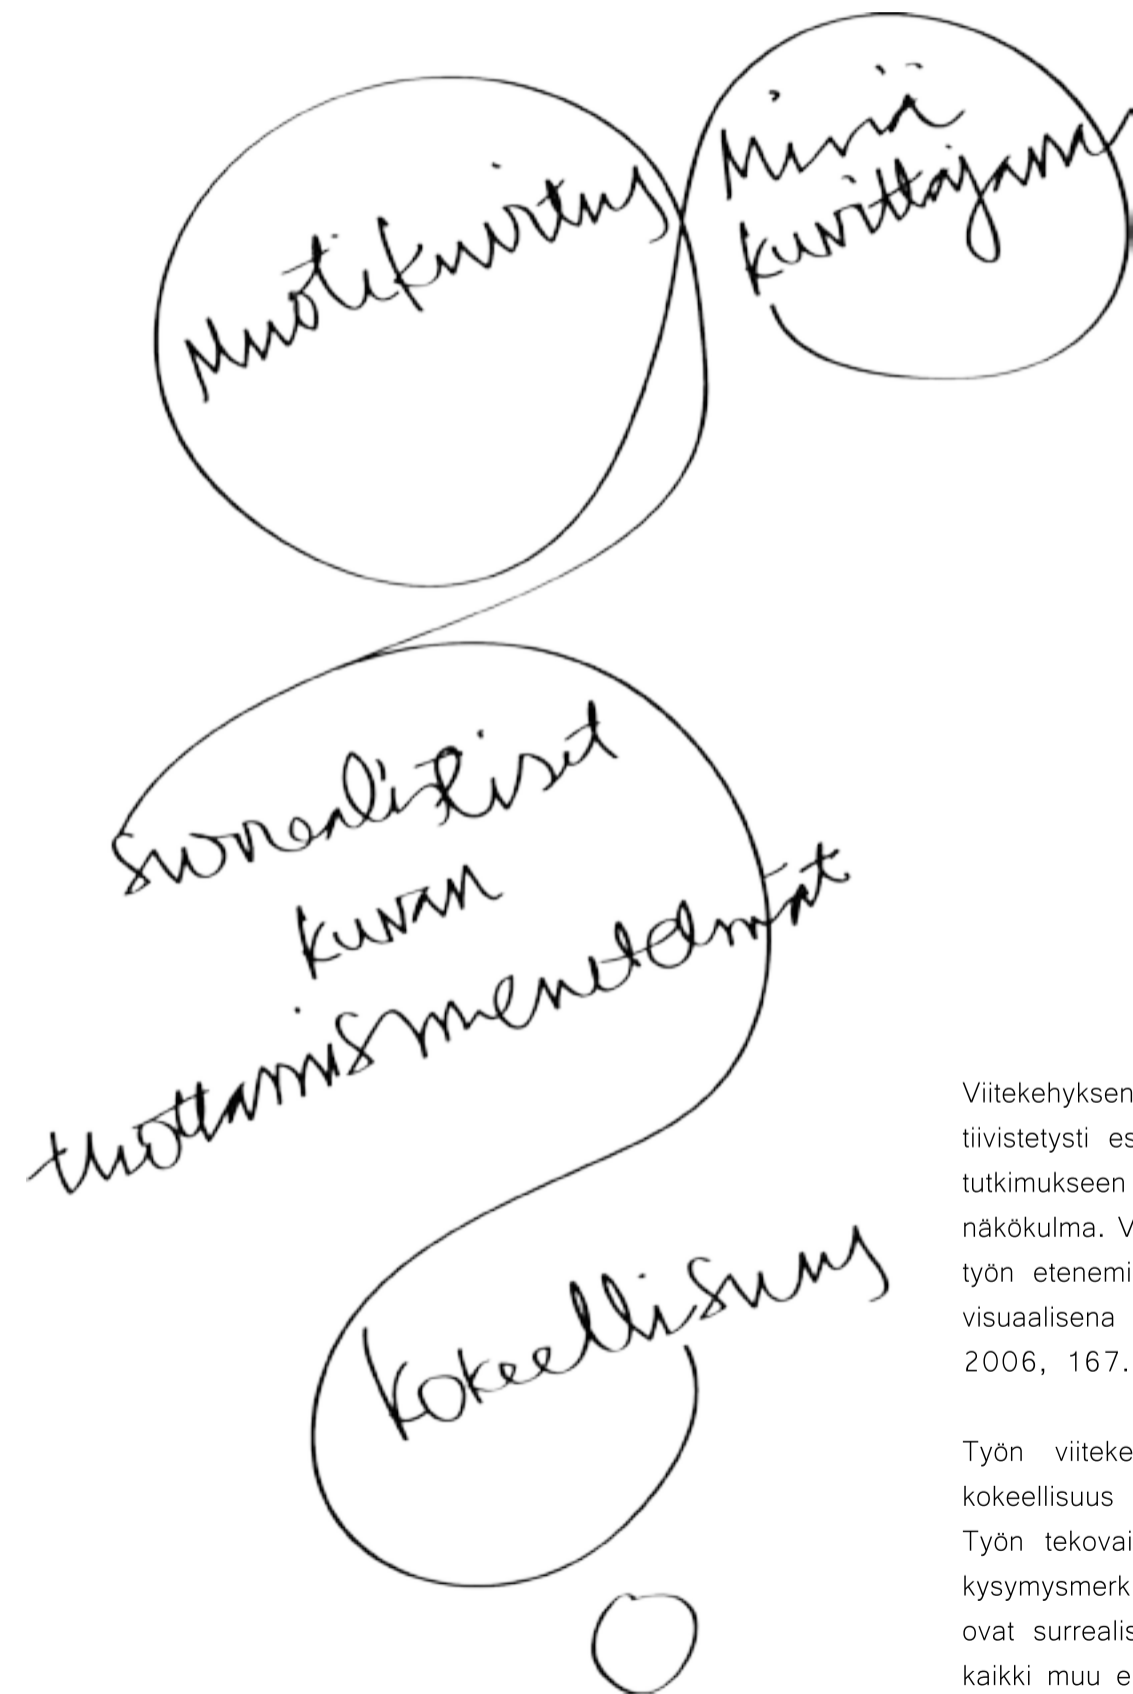 Muotikuvitus
Minä
kuvittajana
surrealistiset
kuvan
tuottamismenetelmät
Kokeellisuus
Viitekehyksen
tiivistetysti es
tutkimukseen
näkökulma. V
työn etenemi
visuaalisena
2006, 167.
Työn viiteke
kokeellisuus
Työn tekovai
kysymysmerk
ovat surrealis
kaikki muu e